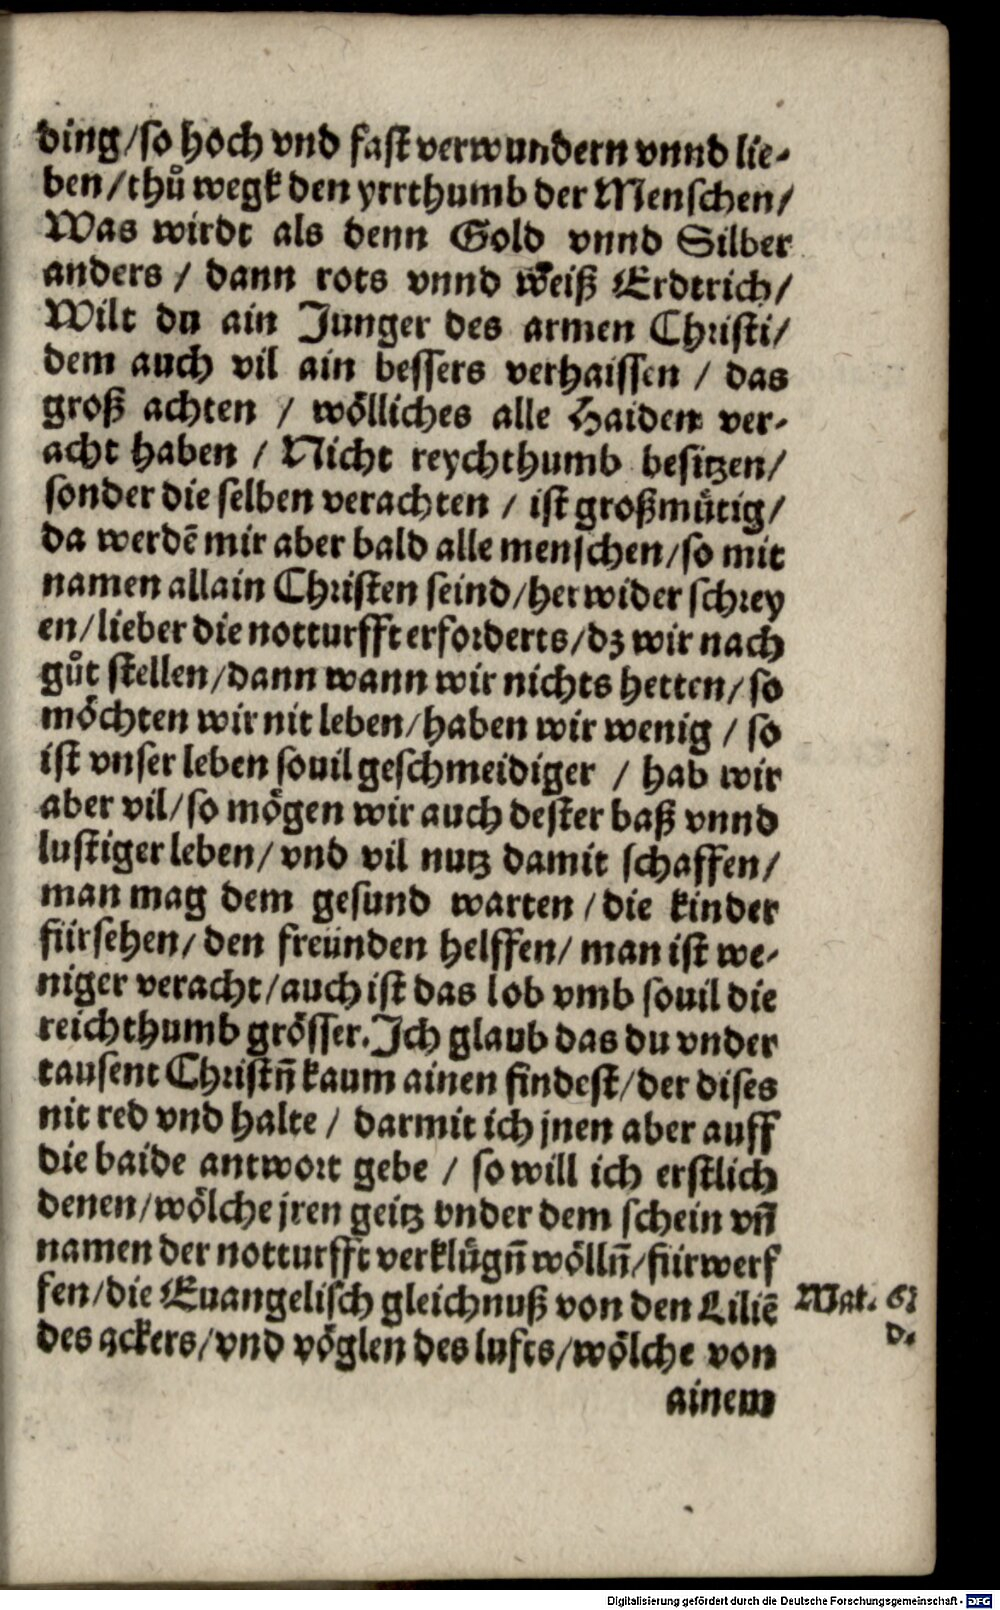 ding/so hoch vnd fast verwundern vnnd lie-
ben/thuͦ wegk den yrrthumb der Menschen/
Was wirdt als denn Gold vnnd Silber
anders / dann rots vnnd weiß Erdtrich/
Wilt du ain Junger des armen Christi/
dem auch vil ain bessers verhaissen / das
groß achten / woͤlliches alle Haiden ver-
acht haben / Nicht reychthumb besitzen/
sonder die selben verachten / ist großmuͤtig/
da werdē mir aber bald alle menschen/so mit
namen allain Christen seind/herwider schrey
en/lieber die notturfft erforderts/dz wir nach
guͦt stellen/dann wann wir nichts hetten/so
moͤchten wir nit leben/haben wir wenig / so
ist vnser leben souil geschmeidiger / hab wir
aber vil/so moͤgen wir auch dester baß vnnd
lustiger leben/ vnd vil nutz damit schaffen/
man mag dem gesund warten /die kinder
fürsehen/ den freünden helffen/ man ist we-
niger veracht/auch ist das lob vmb souil die
reichthumb groͤsser. Ich glaub das du vnder
tausent Christn̄ kaum ainen findest/der dises
nit red vnd halte / darmit ich jnen aber auff
die baide antwort gebe / so will ich erstlich
denen/woͤlche jren geitz vnder dem schein vn̄
namen der notturfft verkluͤgn̄ woͤlln̄/fürwerf
fen/die Euangelisch gleichnuß von den Liliē
des ackers/vnd voͤglen des lufts/woͤlche von
ainem
Mat. 6
d.
Digitalisierung gefördert durch die Deutsche Forschungsgemeinschaft - DFG